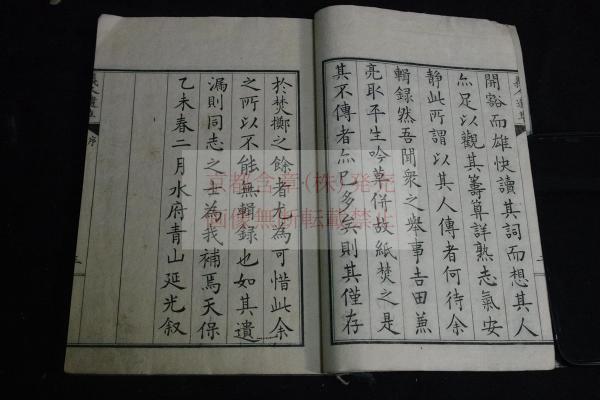 開豁而雄快讀其詞而想其人
亦足以觀其籌算詳熟志氣安
靜此所謂以其人傳者何待余
輯録然吾聞衆之舉事𠮷田兼
亮取平生吟草併故紙焚之是
其不傳者亦已多矣則其僅存
於焚擲之餘者尤為可惜此余
之所以不能無輯録也如其遺
漏則同志之士為我補焉天保
乙未春二月水府青山延光叙
義人遺草
序
京都含章(株)発売
画像無断転載禁止